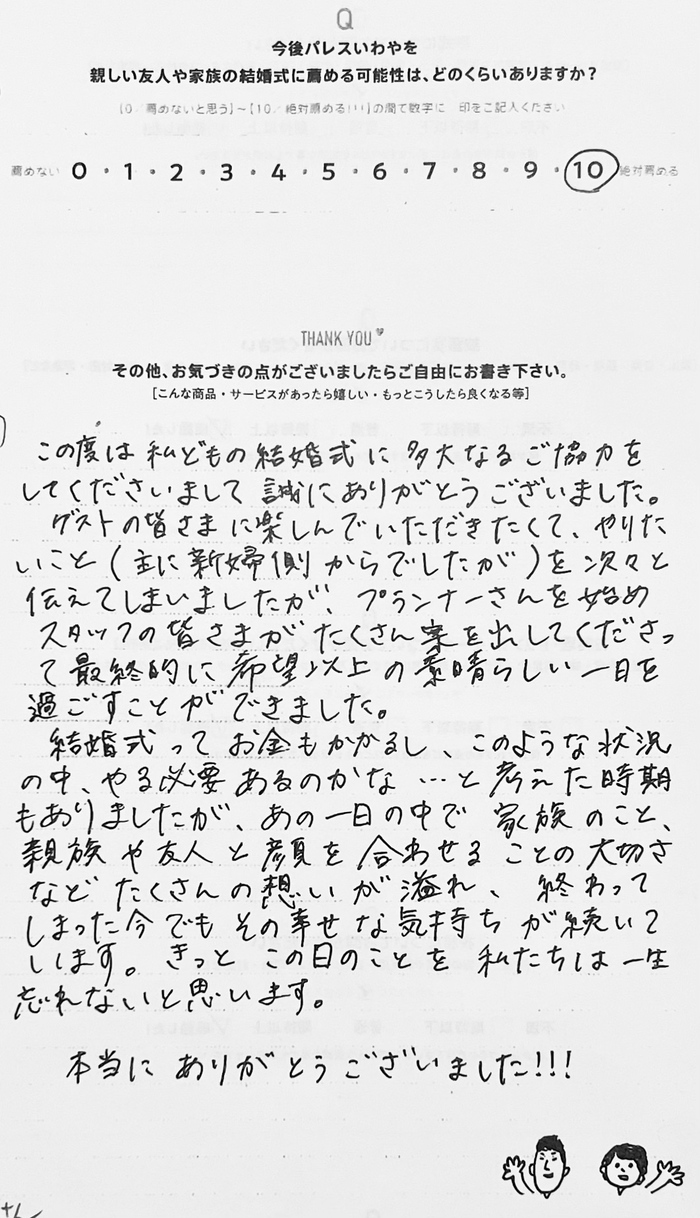 Q
今後パレスいわやを
親しい友人や家族の結婚式に薦める可能性は、どのくらいありますか?
[0/薦めないと思う]~[10/絶対薦める!!!]の間で数字に 印をご記入ください
薦めない 0・1・2・3・4・5・6・7・8・9・10 絶対薦める
THANK YOU♥
その他、お気づきの点がございましたらご自由にお書き下さい。
[こんな商品・サービスがあったら嬉しい・もっとこうしたら良くなる等]
この度は私どもの結婚式に多大なるご協力を
してくださいまして誠にありがとうございました。
ゲストの皆さまに楽しんでいただきたくて、やりた
いこと(主に新婦側からでしたが)を次々と
伝えてしまいましたが、プランナーさんを始め
スタッフの皆さまがたくさん案を出してくださっ
て最終的に希望以上の素晴らしい一日を
過ごすことができました。
結婚式ってお金もかかるし、このような状況
の中、やる必要あるのかな…と考えた時期
もありましたが、あの一日の中で家族のこと、
親族や友人と顔を合わせることの大切さ
などたくさんの想いが溢れ、終わって
しまった今でもその幸せな気持ちが続いて
います。きっとこの日のことを私たちは一生
忘れないと思います。
本当にありがとうございました!!!